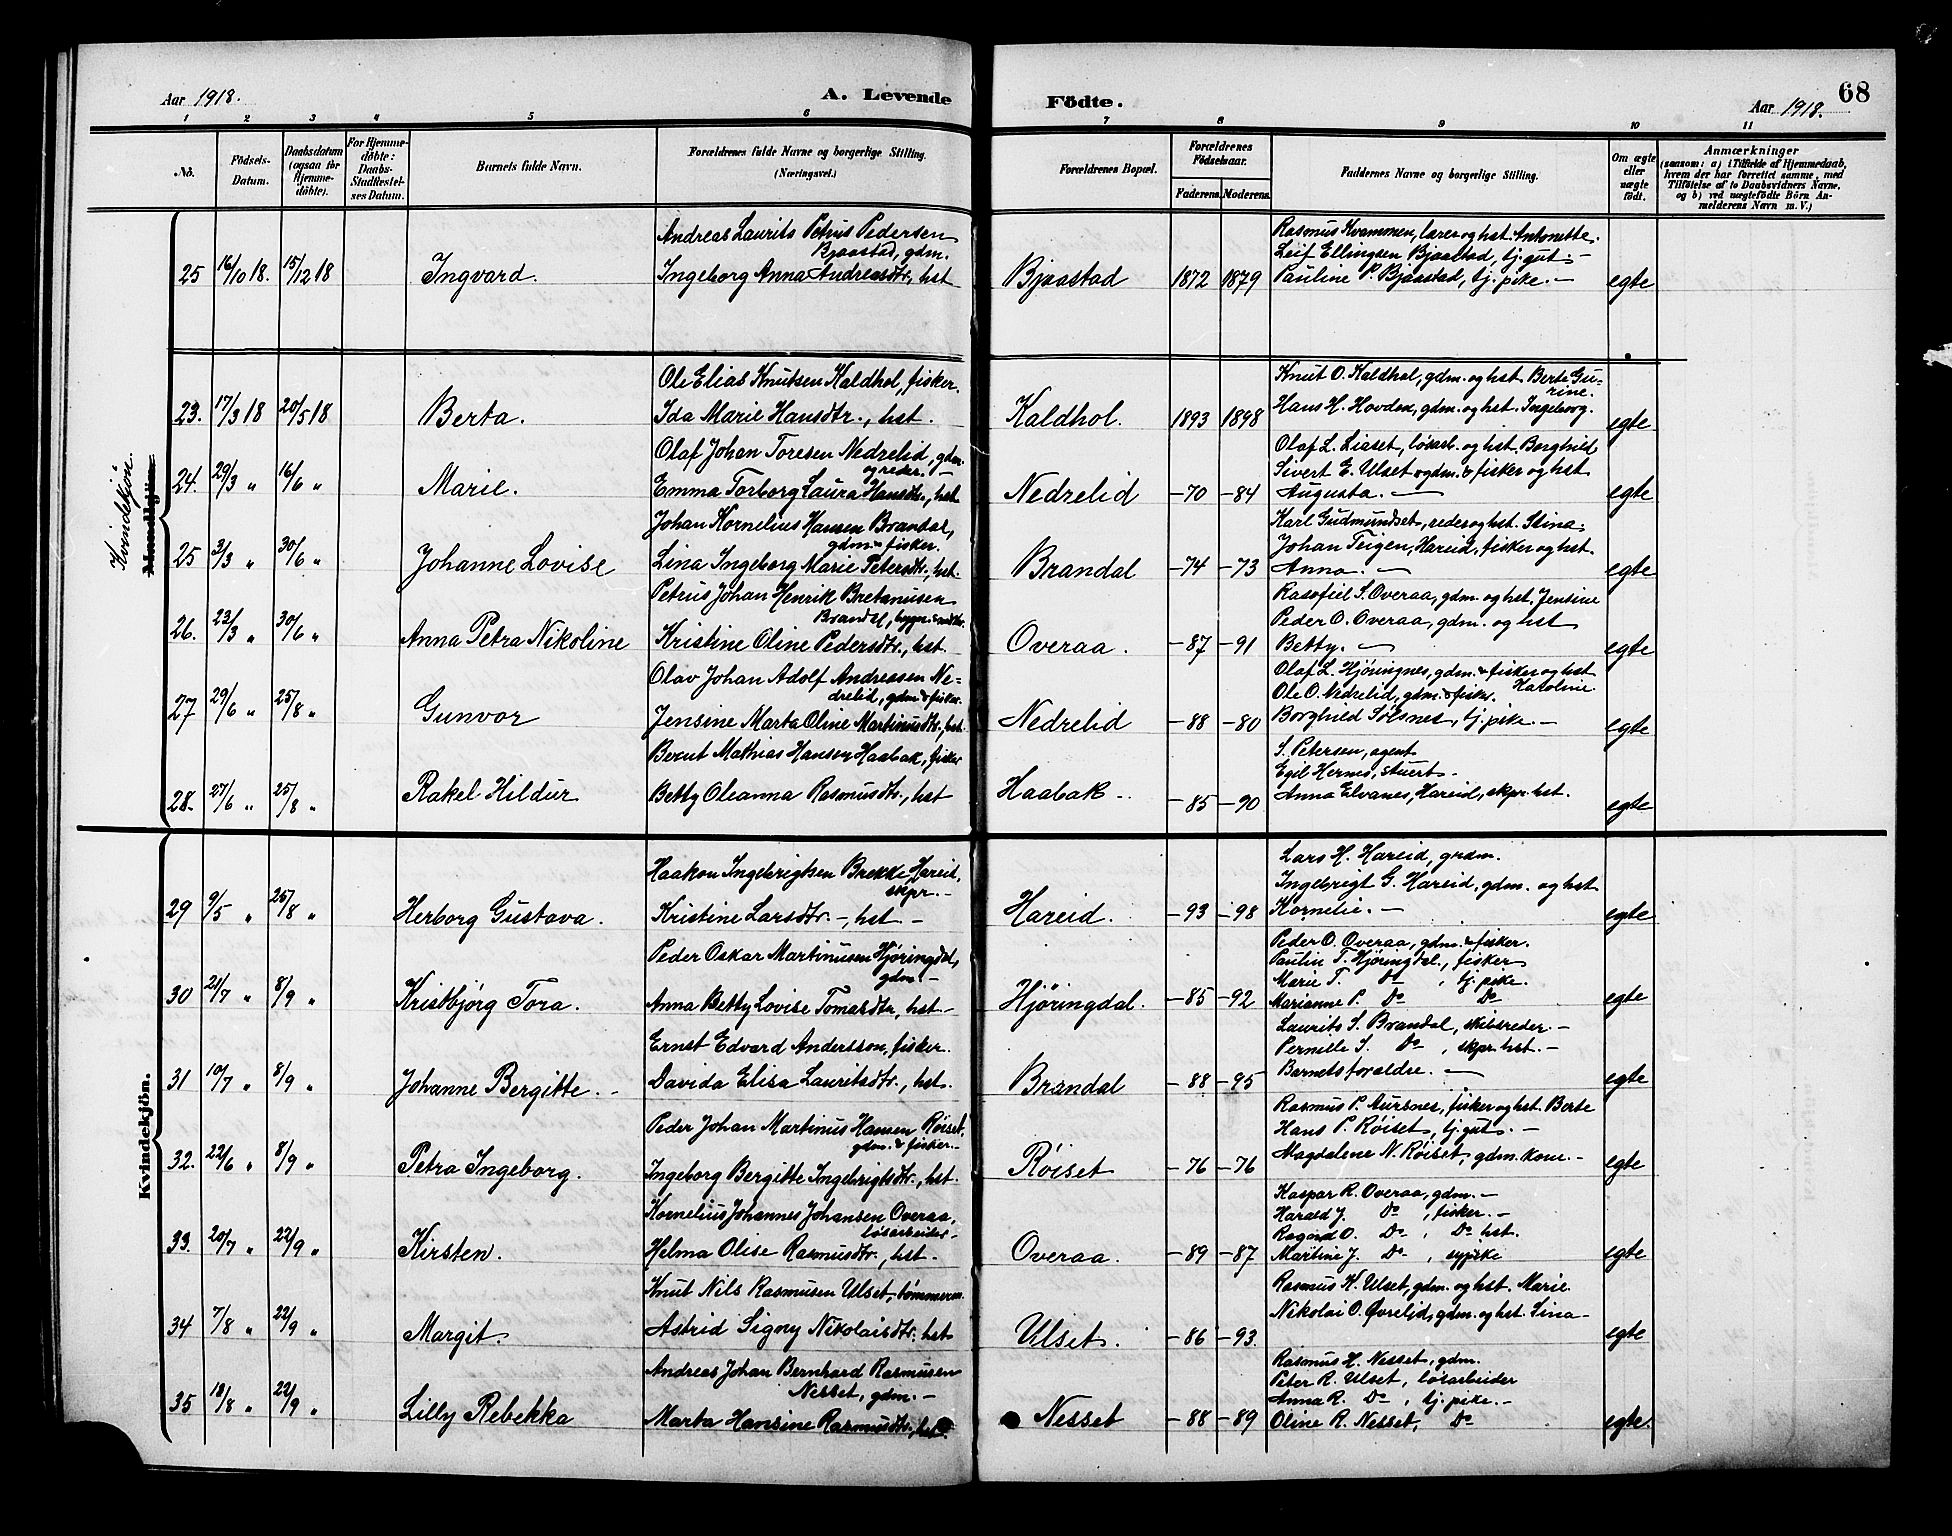 Aar 1918.
A. Levende
Födte.
68
Aar 1918.
1 2 3 4 5 6 7 8 9 10 11
No.
Födsels-
Datum.
Daabsdatum
(ogsaa for
Hjemme-
döbte).
For Hjemme-
döbte:
Daabs-
Stadfæstel-
ses Datum.
Barnets fulde Navn.
Forældrenes fulde Navne og borgerlige Stilling.
(Næringsvei.)
Forældrenes Bopæl.
Forældrenes
Födselsaar.
Faderens. Moderens.
Faddernes Navne og borgerlige Stilling.
Om ægte
eller
uægte
födt.
Anmærkninger
(saasom: a) i Tilfælde af Hjemmedaab,
hvem der har forrettet samme, med
Tilföielse af to Daabsvidners Navne,
og b) ved uægtefödte Börn An-
melderens Navn m. V.)
Andreas Laurits Petrus Pedersen
Bjaastad, gdm.
25 16/10 18. 15/12 18 Ingvard. Ingeborg Anna Andreasdtr., hst
Bjaastad 1872 1879
Rasmus Kvammen, lærer og hst. Antonette.
Leif Ellingsen Bjaastad, tj. gut. –
Pauline P. Bjaastad, tj. pike. –
egte
Kvindekjön.
Mandkjön.
Ole Elias Knutsen Kaldhol, fisker.
23. 17/3 18 20/5 18 Berta. Ida Marie Hansdtr., hst.
Kaldhol. 1893 1898
Knut O. Kaldhol, gdm. og hst. Berte Gu-
rine.
Hans H. Hovden, gdm. og hst. Ingeborg.
egte
Olaf Johan Toresen Nedrelid, gdm.
og reder. –
24. 29/3 " 16/6 " Marie. Emma Torborg Laura Hansdtr., hst
Nedrelid –70 –84
Olaf L. Liaset, løsarb. og hst. Borghild
Sivert E. Ulset gdm. & fisker og hst
Augusta. –
egte
Johan Kornelius Hansen Brandal,
gdm. & fisker.
25 3/3 " 30/6 " Johanne Lovise Lina Ingeborg Marie Petersdtr., hst.
Brandal –74 –73
Karl Gudmundset, reder og hst. Stina.
Johan Teigen, Hareid, fisker og hst
Anna. –
egte
Petrus Johan Henrik Bretanusen
26. 23/3 " 30/6 " Anna Petra Nikoline Kristine Oline Pedersdtr., hst.
Overaa. –87 –91
Rasofiel S. Overaa, gdm. og hst. Jensine
Peder O. Overaa, gdm. og hst
Betty. –
egte
Olav Johan Adolf Andreassen Ne-
drelid, gdm. & fisker.
27 29/6 " 25/8 " Gunvor Jensine Marta Oline Martinusdtr., hst.
Nedrelid –88 –80
Olaf L. Hjøringnes, gdm. & fisker og hst
Karoline.
Ole O. Nedrelid, gdm. & fisker.
Borghild Sølsnes, tj. pike. –
egte
Bernt Mathias Hansen Haabak, fisker
28. 27/6 " 25/8 " Rakel Hildur Betty Oleanna Rasmusdtr., hst
Haabak. –85 –90
S. Petersen, agent
Egil Hernes, stuert –
Anna Elvanes, Hareid, skpr. hst.
egte
Kvindekjön.
Haakon Ingebrigtsen Brekke Hareid,
skpr. –
29 9/5 " 25/8 " Herborg Gustava. Kristine Larsdtr. –, hst –
Hareid. –93 –98
Lars H. Hareid, grdm.
Ingebrigt G. Hareid, gdm. og hst
Kornelie. –
egte
Peder Oskar Martinusen Hjøringdal,
gdm –
30 21/7 " 8/9 " Kristbjörg Tora. Anna Betty Lovise Tomasdtr, hst –
Hjøringdal. –85 –92
Peder O. Overaa, gdm. & fisker.
Paulin T. Hjøringdal., fisker
Marie T. Do, tj. pike.
Marianne P. Do Do
egte
Ernst Edvard Andersson, fisker.
31 10/7 " 8/9 " Johanne Bergitte. – Davida Elisa Lauritsdtr., hst.
Brandal –88 –95
Laurits S. Brandal, skibsreder. –
Pernille S. Do, skpr. hst. –
Barnets foraldre. –
egte
Peder Johan Martinus Hansen Røiset,
gdm. & fisker. –
32. 22/6 " 8/9 " Petra Ingeborg. Ingeborg Bergitte Ingebrigtsdtr., hst.
Røiset –76 –76
Rasmus P. Aursnes, fisker og hst. Berte
Hans P. Røiset, tj. gut. –
Magdalene N. Røiset, gdm. kone. –
egte
Kornelius Johannes Johansen Overaa,
løsarbeider –
33. 20/7 " 22/9 " Kirsten. Helma Olise Rasmusdtr., hst.
Overaa. –89 –87
Kaspar R. Overaa, gdm. –
Harald J. Do, fisker. –
Ragna O. Do, Do hst.
Martine J. Do, sypike
egte
Knut Nils Rasmusen Ulset, tømmerm.
34 7/8 " 22/9 " Margit. Astrid Signy Nikolaisdtr. hst
Ulset. –86 –93.
Rasmus K. Ulset, gdm. og hst. Marie.
Nikolai O. Øvrelid, gdm. og hst. Lina –
egte
Andreas Johan Bernhard Rasmusen
Nesset, gdm. –
35 18/8 " 22/9 " Lilly Rebekka Marta Hansine Rasmusdtr., hst.
Nesset –88 –89
Rasmus H. Nesset, gdm.
Peter R. Ulset, løsarbeider
Anna R. Do, tj. pike. –
Oline R. Nesset, Do
egte.